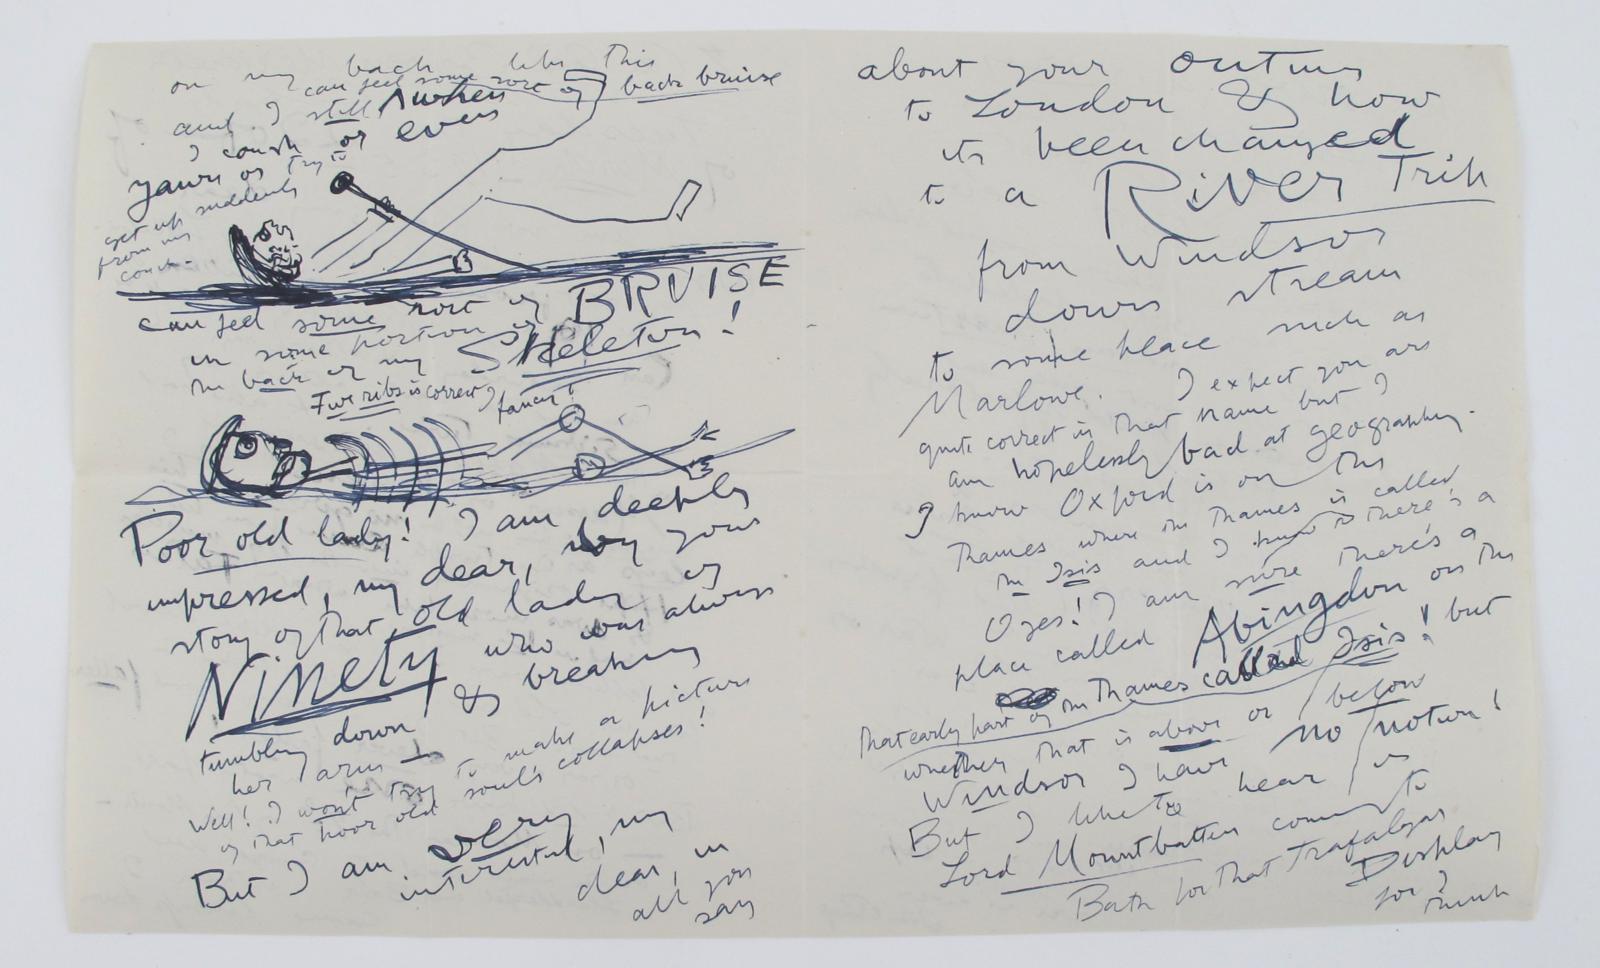 on my back like this
can feel some sort of back bruise
and I still when
I cough or even
yawn or try to
get up suddenly
from my
couch -
can feel some sort of BRUISE
in some portion of
the back of my Skeleton!
Five ribs is correct I fancy!
Poor old lady! I am deeply
impressed, my dear, by your
story of that old lady of
Ninety who was always
tumbling down & breaking
her arms
Well! I won't try to make a picture
of that poor old soul's collapses!
But I am very
interested, my
dear, in
all you
say
about your outing
to London & how
its been changed
to a River Trip
from Windsor
down stream
to some place such as
Marlowe. I expect you are
quite correct in that name but I
am hopelessly bad at geography.
I know Oxford is on the
Thames where the Thames is called
the Isis and I know there's a
O yes! I am sure there's a
place called Abingdon on the
That early part of the Thames called Isis! but
whether that is above or below
Windsor I have no notion!
But I like to hear
Lord Mountbatten is coming to
Bath for that Trafalgar
Display
for I
think